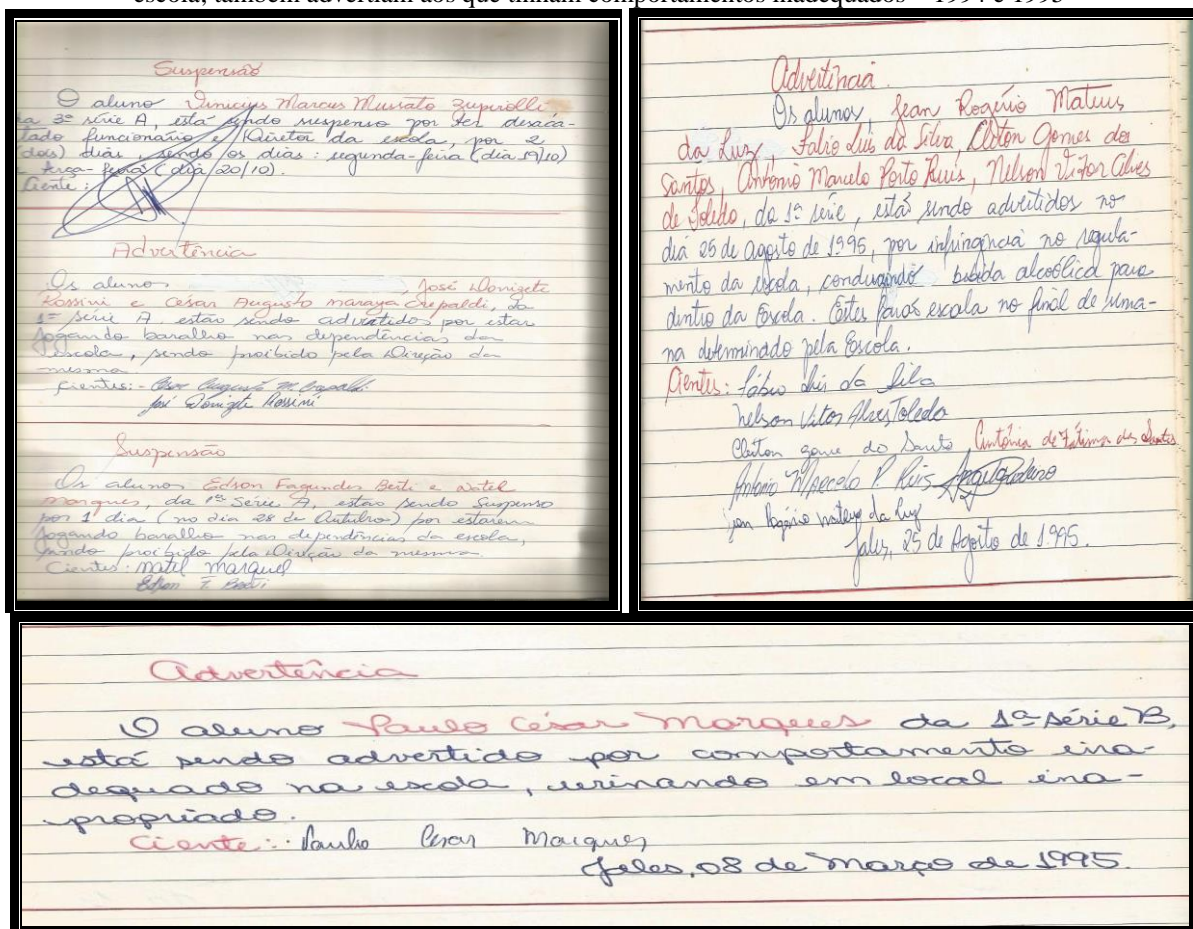 escola, também advertiam aos que tinham comportamentos inadequados – 1994 e 1995
Suspensão
O aluno Vinicius Marcus Mussato Zupirolli
a 3ª série A, está sendo suspenso por ter desaca-
tado funcionário e Diretor da escola, por 2
(dois) dias, sendo os dias: segunda-feira (dia 19/10)
terça-feira (dia 20/10).
Ciente:
Advertência
Os alunos José Donizete
Rossini e César Augusto maraya Crepaldi, da
1ª série A, estão sendo advertidos por estar
jogando baralho nas dependências da
escola, sendo proibido pela Direção da
mesma.
Cientes:- Cesar Augusto M. Crepaldi
José Donizete Rossini
Suspensão
Os alunos Edson Fagundes Berti e Natel
marques, da 1ª Série A, estão sendo Suspenso
por 1 dia (no dia 28 de Outubro) por estarem
jogando baralho nas dependências da escola,
sendo proibido pela Direção da mesma.
Cientes: natel marques
Edson F. Berti
Advertência
Os alunos, Jean Rogério Mateus
da Luz, Fabio Luís da Silva, Cleiton Gomes dos
Santos, Antonio Marcelo Porto Ruis, Nelson Vitor Alves
de Toledo, da 1ª série, estás sendo advertidos no
dia 25 de agosto de 1995, por infringência no regula-
mento da escola, conduzindo bebida alcoólica para
dentro da Escola. Estes escala no final de sema-
na determinado pela Escola.
Cientes: Fábio Luis da Silva
Nelson Vitor Alves Toledo
Cleiton gome do Santo Antônia de Fátima dos Santos
Antonio Marcelo P. Ruis
Jean Rogério mateus da luz
Jales, 25 de Agosto de 1.995.
Advertência
O aluno Paulo César Marques da 1ª série B,
está sendo advertido por comportamento ina-
dequado na escola, urinando em local ina-
propriado.
Ciente: Paulo Cesar Marques
Jales, 08 de Março de 1995.